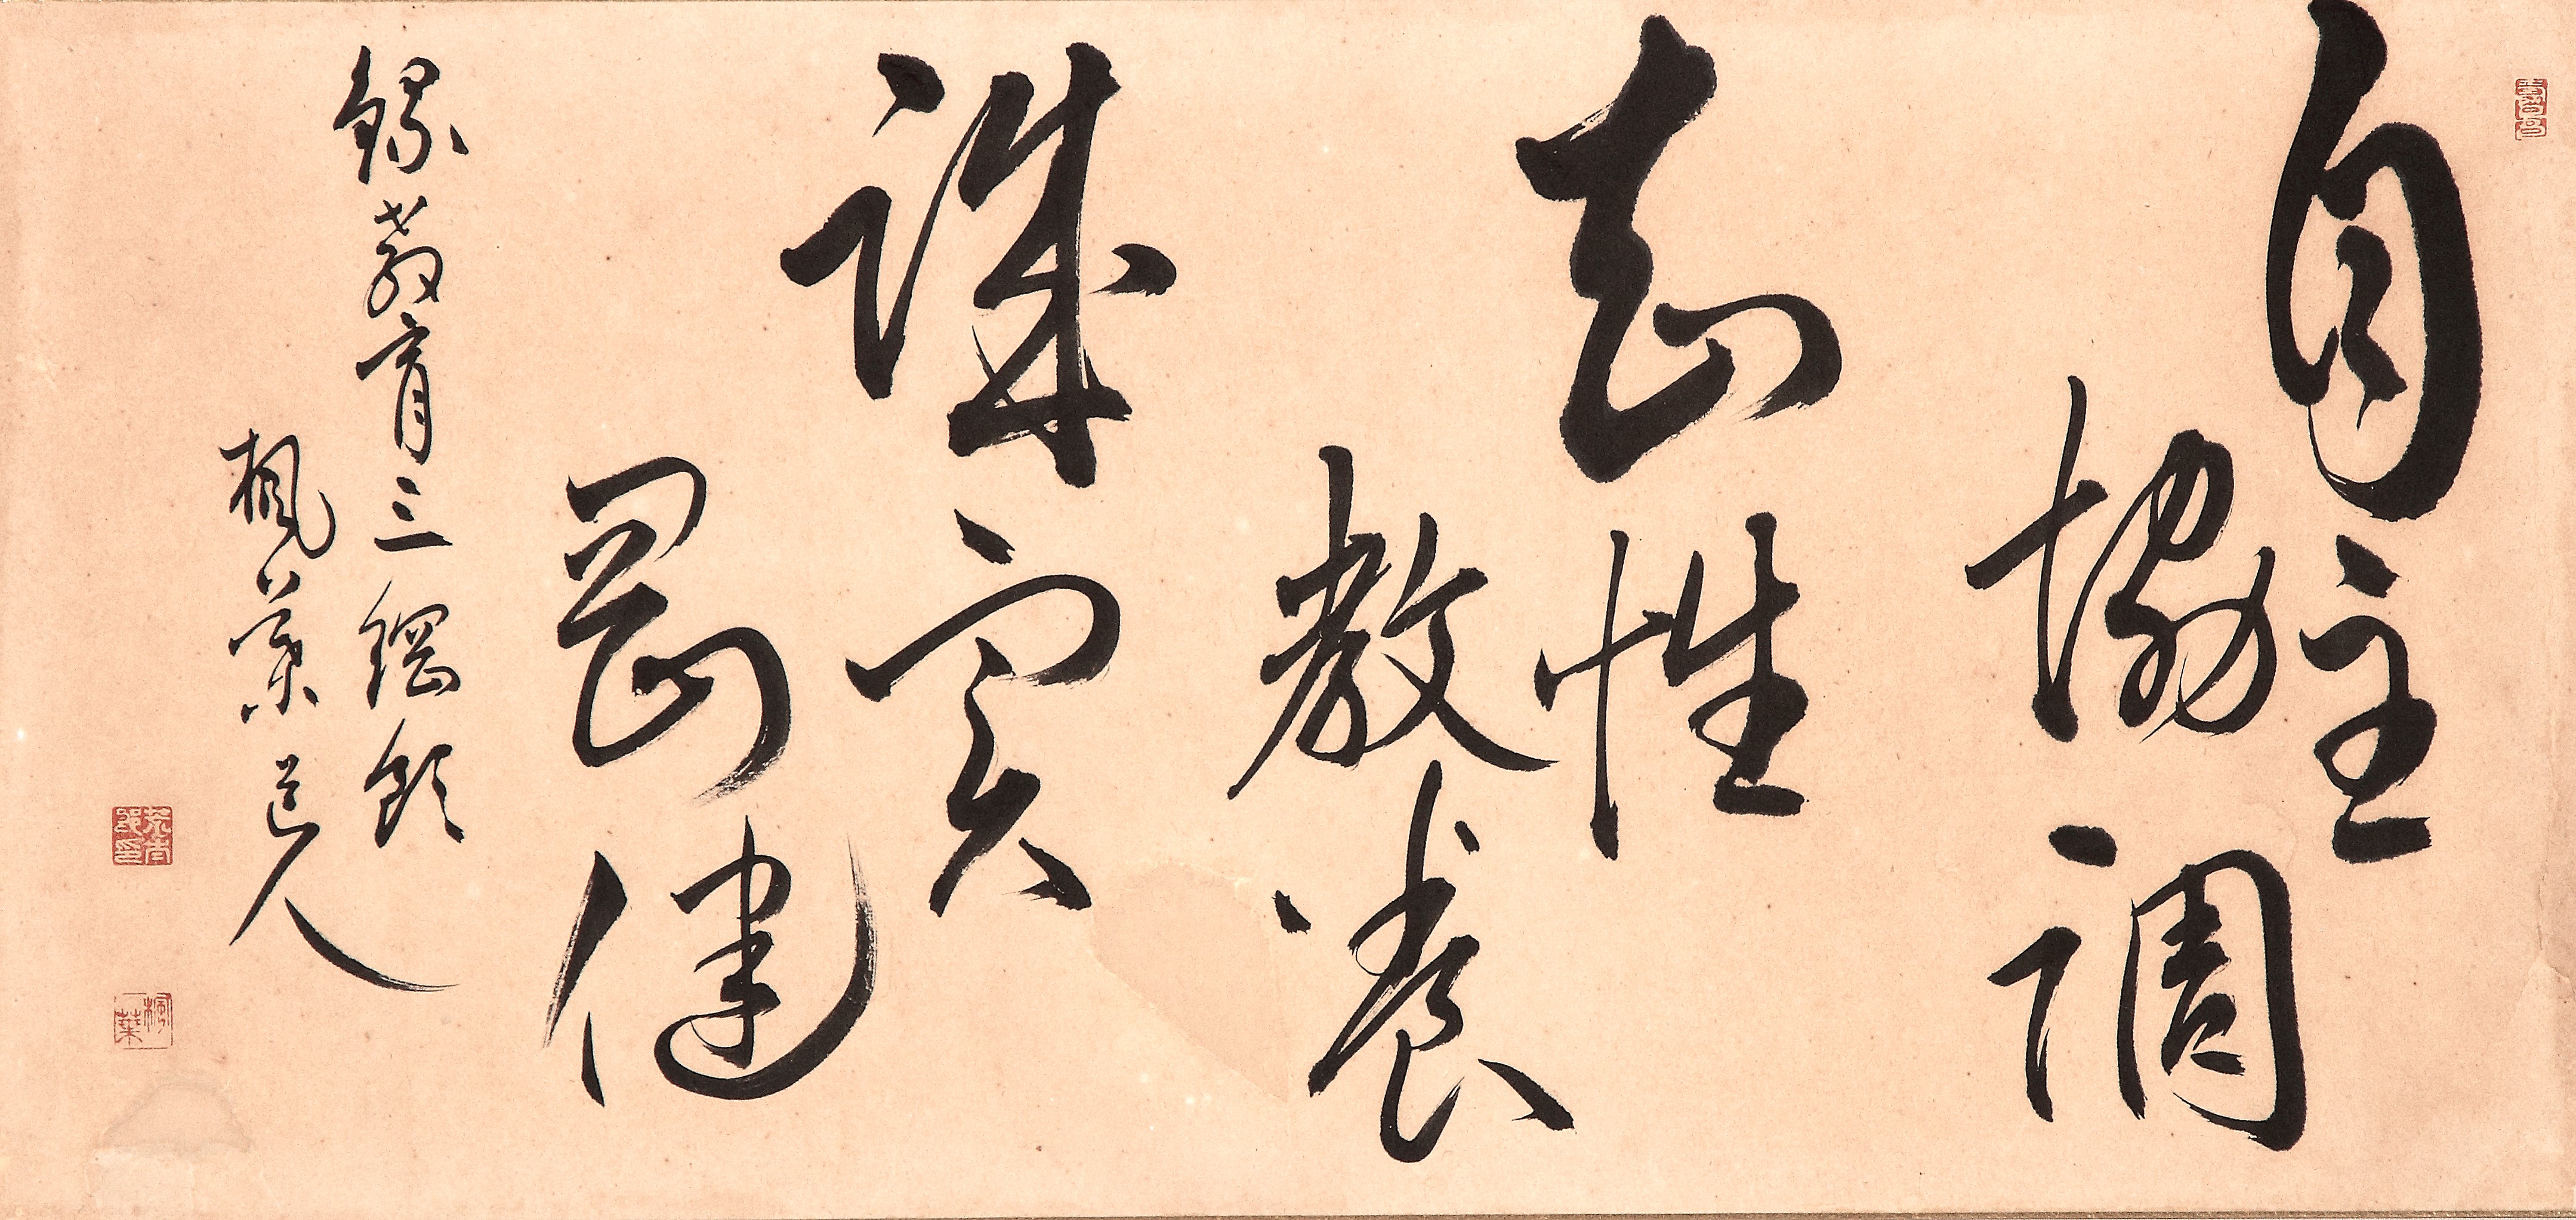 自主
協調
知性
教養
誠実
剛健
録教育三綱領
楓葉道人